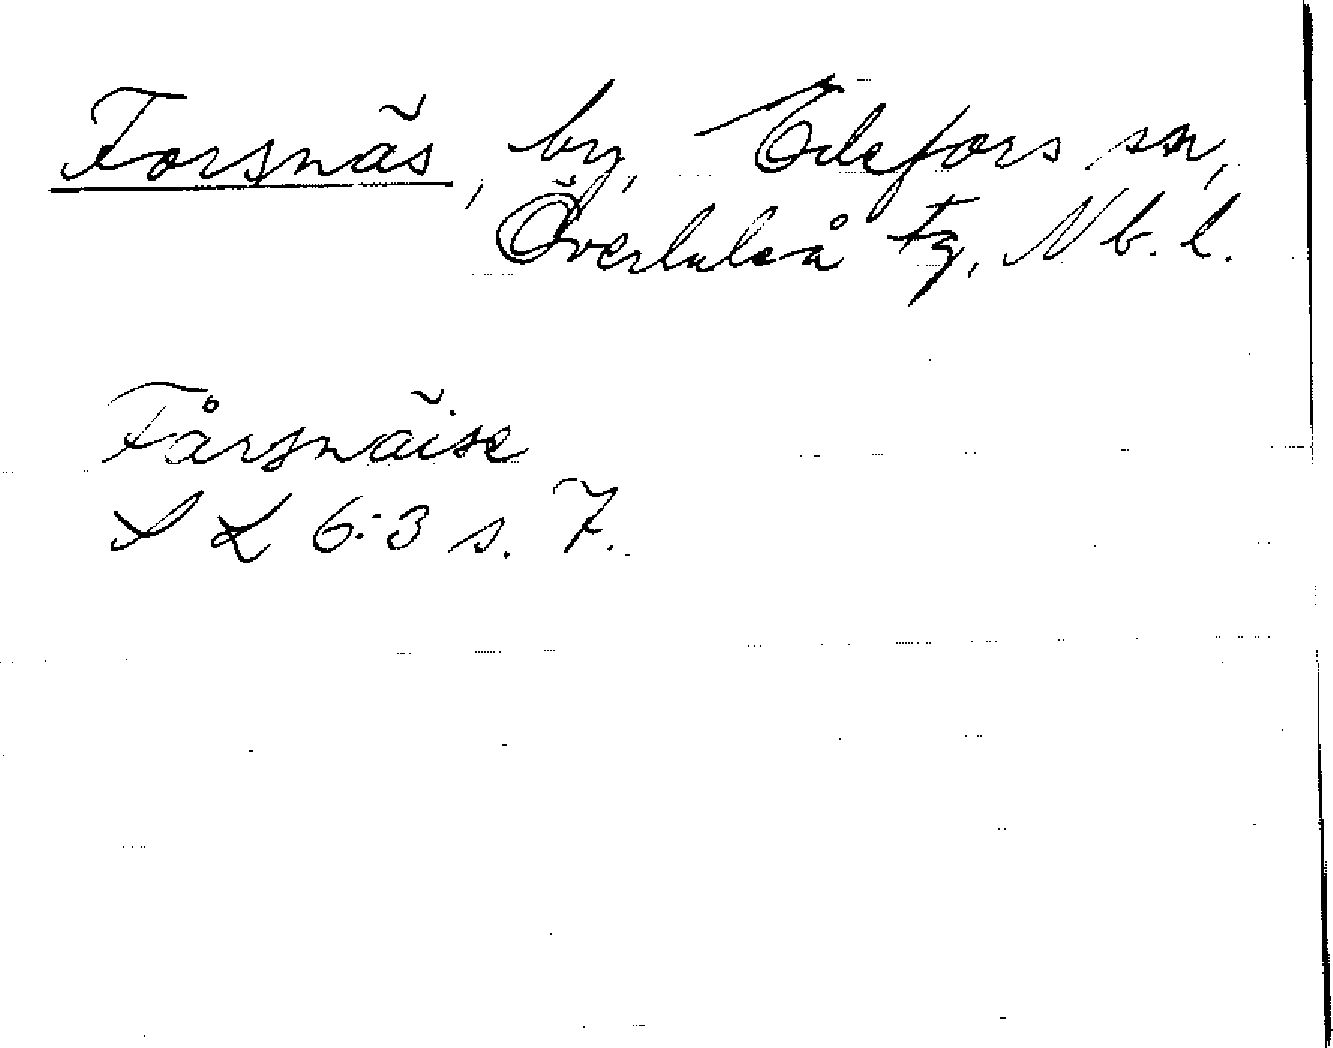 Forsnäs, by, Edefors sn,
Överluleå tg, Nb. l.
Fårsnäise
S L 6:3 s. 7.